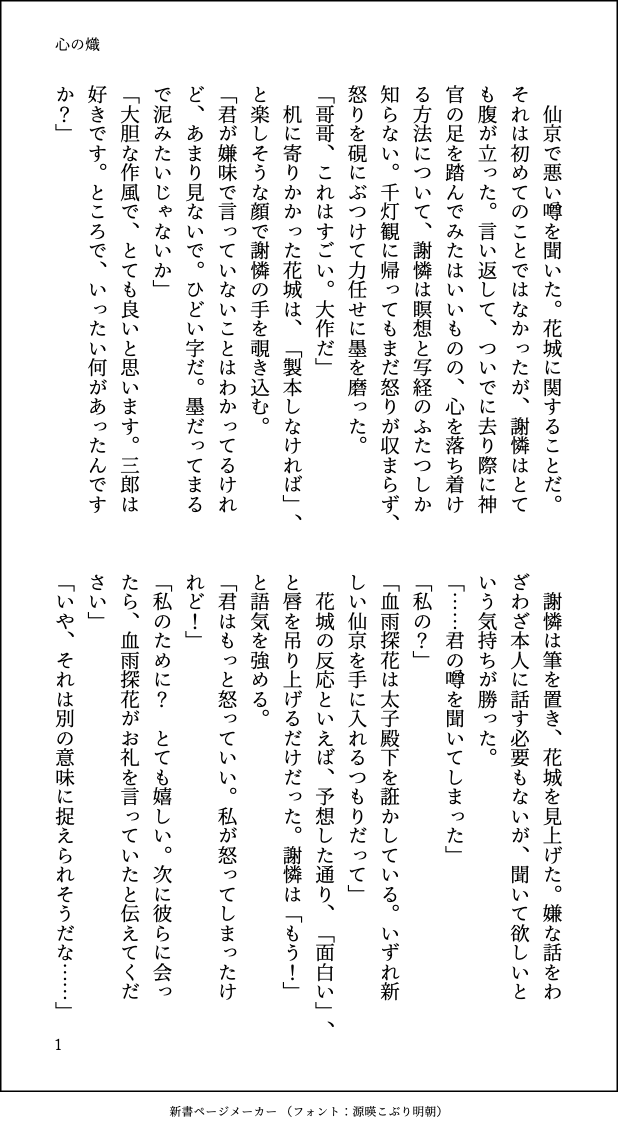 心の熾
　仙京で悪い噂を聞いた。花城に関することだ。
それは初めてのことではなかったが、謝憐はとて
も腹が立った。言い返して、ついでに去り際に神
官の足を踏んでみたはいいものの、心を落ち着け
る方法について、謝憐は瞑想と写経のふたつしか
知らない。千灯観に帰ってもまだ怒りが収まらず、
怒りを硯にぶつけて力任せに墨を磨った。
「哥哥、これはすごい。大作だ」
　机に寄りかかった花城は、「製本しなければ」、
と楽しそうな顔で謝憐の手を覗き込む。
「君が嫌味で言っていないことはわかってるけれ
ど、あまり見ないで。ひどい字だ。墨だってまる
で泥みたいじゃないか」
「大胆な作風で、とても良いと思います。三郎は
好きです。ところで、いったい何があったんです
か？」
　謝憐は筆を置き、花城を見上げた。嫌な話をわ
ざわざ本人に話す必要もないが、聞いて欲しいと
いう気持ちが勝った。
「……君の噂を聞いてしまった」
「私の？」
「血雨探花は太子殿下を誑かしている。いずれ新
しい仙京を手に入れるつもりだって」
　花城の反応といえば、予想した通り、「面白い」、
と唇を吊り上げるだけだった。謝憐は「もう！」
と語気を強める。
「君はもっと怒っていい。私が怒ってしまったけ
れど！」
「私のために？　とても嬉しい。次に彼らに会っ
たら、血雨探花がお礼を言っていたと伝えてくだ
さい」
「いや、それは別の意味に捉えられそうだな……」
1
新書ページメーカー（フォント：源暎こぶり明朝）